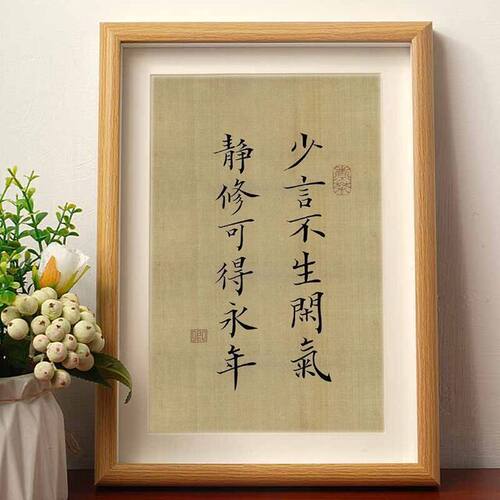 少言不生閑氣
静修可得永年